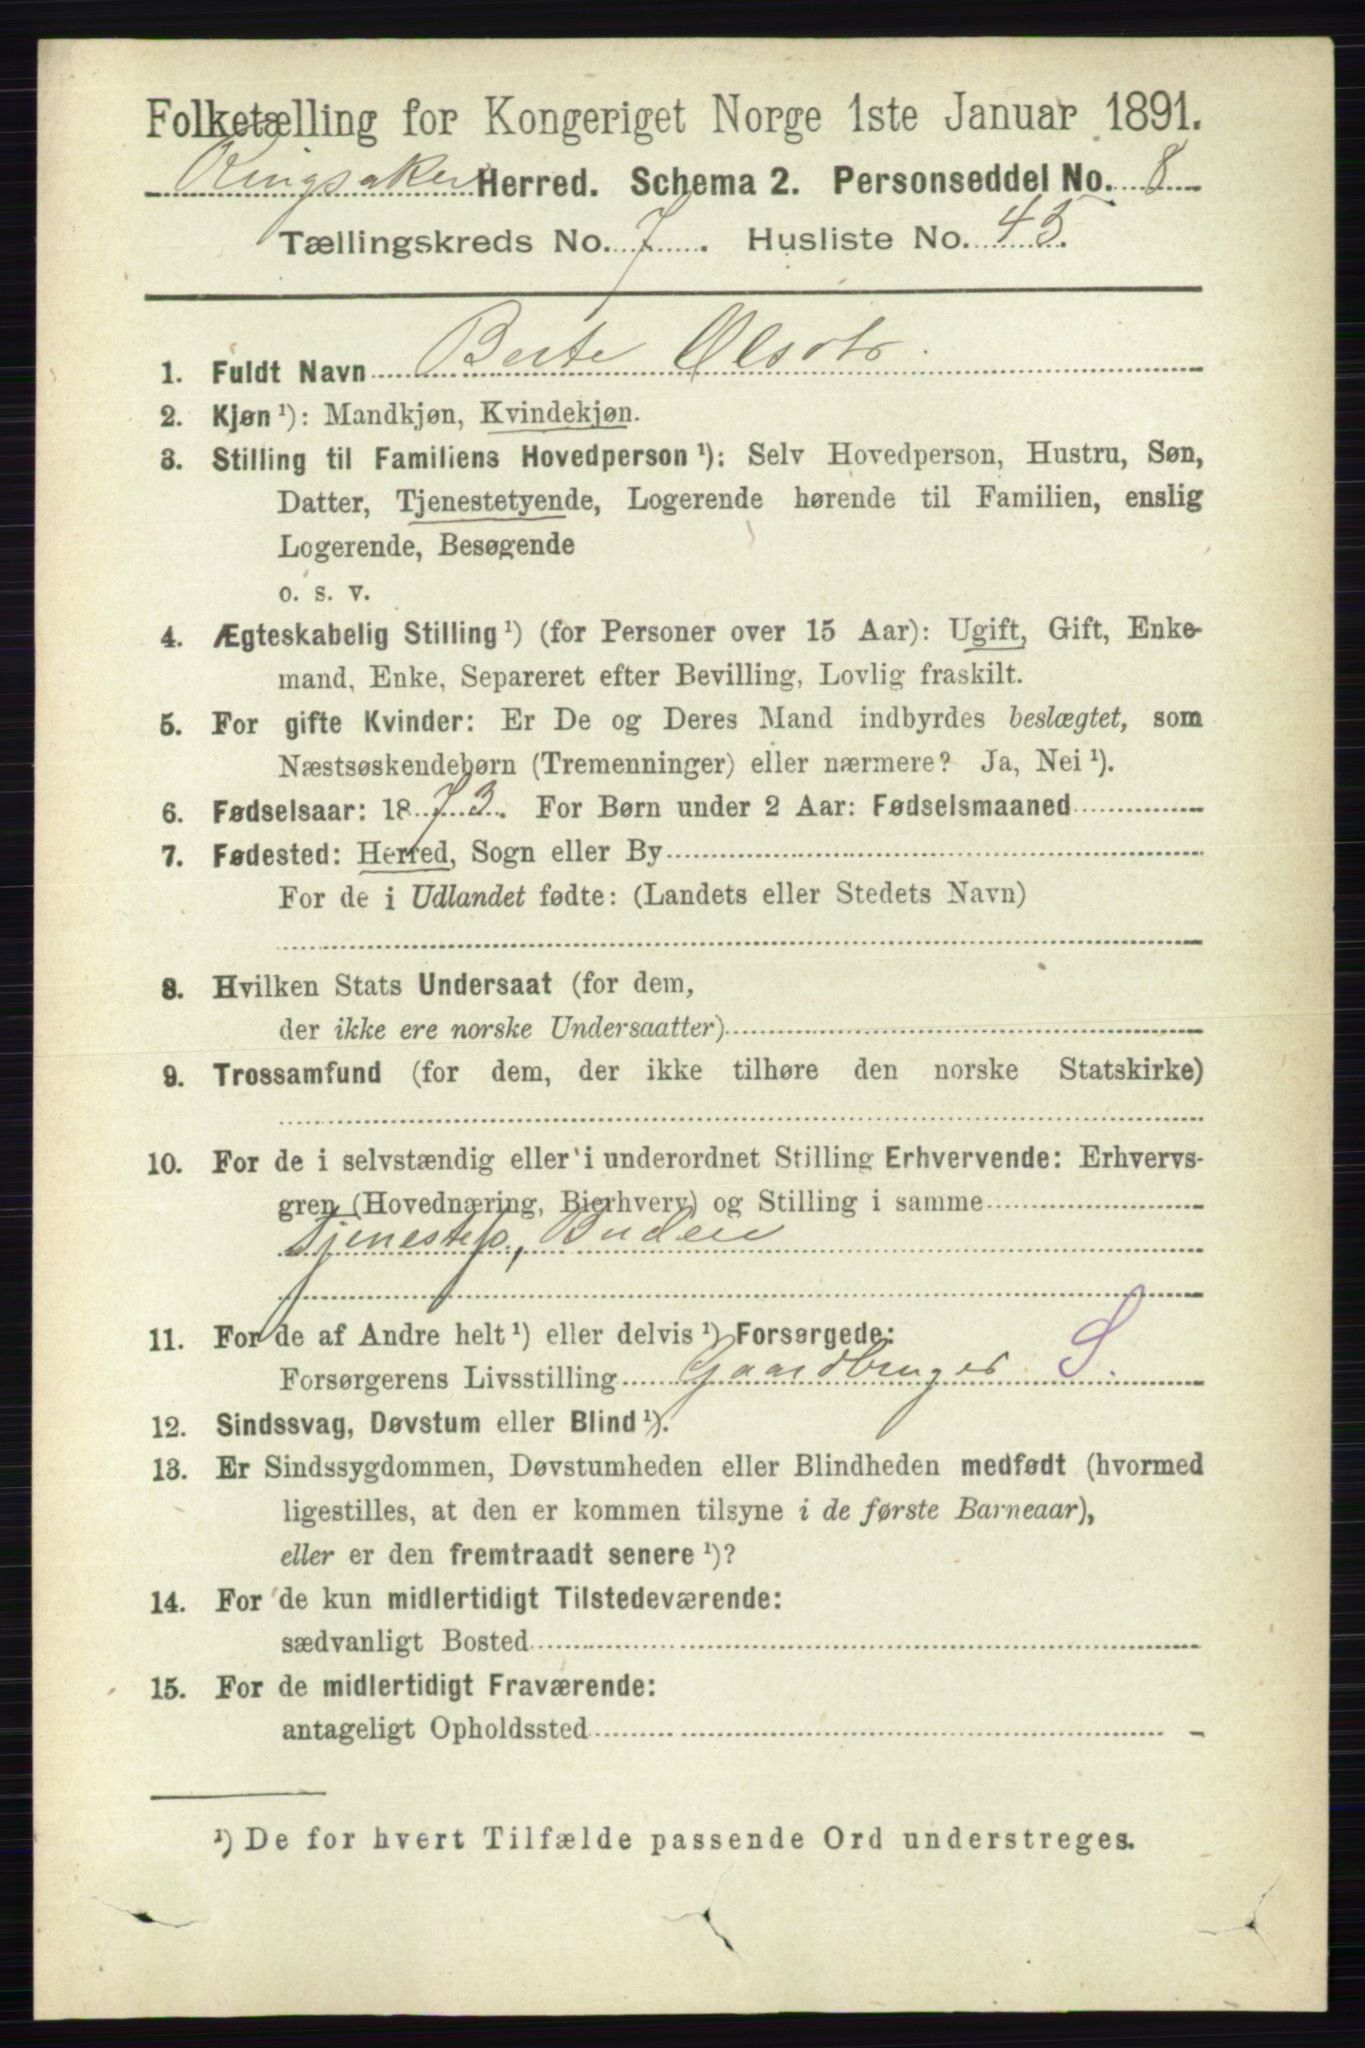 Folketælling for Kongeriget Norge 1ste Januar 1891.
Ringsaker Herred. Schema 2. Personseddel No. 8
Tællingskreds No. 7. Husliste No. 43.
1. Fuldt Navn Berte Olsdtr.
2. Kjøn ¹): Mandkjøn, Kvindekjøn.
3. Stilling til Familiens Hovedperson ¹): Selv Hovedperson, Hustru, Søn,
Datter, Tjenestetyende, Logerende hørende til Familien, enslig
Logerende, Besøgende
o. s. v.
4. Ægteskabelig Stilling ¹) (for Personer over 15 Aar): Ugift, Gift, Enke-
mand, Enke, Separeret efter Bevilling, Lovlig fraskilt.
5. For gifte Kvinder: Er De og Deres Mand indbyrdes beslægtet, som
Næstsøskendebørn (Tremenninger) eller nærmere? Ja, Nei ¹).
6. Fødselsaar: 1873. For Børn under 2 Aar: Fødselsmaaned
7. Fødested: Herred, Sogn eller By
For de i Udlandet fødte: (Landets eller Stedets Navn)
8. Hvilken Stats Undersaat (for dem,
der ikke ere norske Undersaatter)
9. Trossamfund (for dem, der ikke tilhøre den norske Statskirke)
10. For de i selvstændig eller i underordnet Stilling Erhvervende: Erhvervs-
gren (Hovednæring, Bierhverv) og Stilling i samme
Tjenestep, Budeie
11. For de af Andre helt ¹) eller delvis ¹) Forsørgede:
Forsørgerens Livsstilling Gaardbruger S.
12. Sindssvag, Døvstum eller Blind ¹).
13. Er Sindssygdommen, Døvstumheden eller Blindheden medfødt (hvormed
ligestilles, at den er kommen tilsyne i de første Barneaar),
eller er den fremtraadt senere ¹)?
14. For de kun midlertidigt Tilstedeværende:
sædvanligt Bosted
15. For de midlertidigt Fraværende:
antageligt Opholdssted
¹) De for hvert Tilfælde passende Ord understreges.